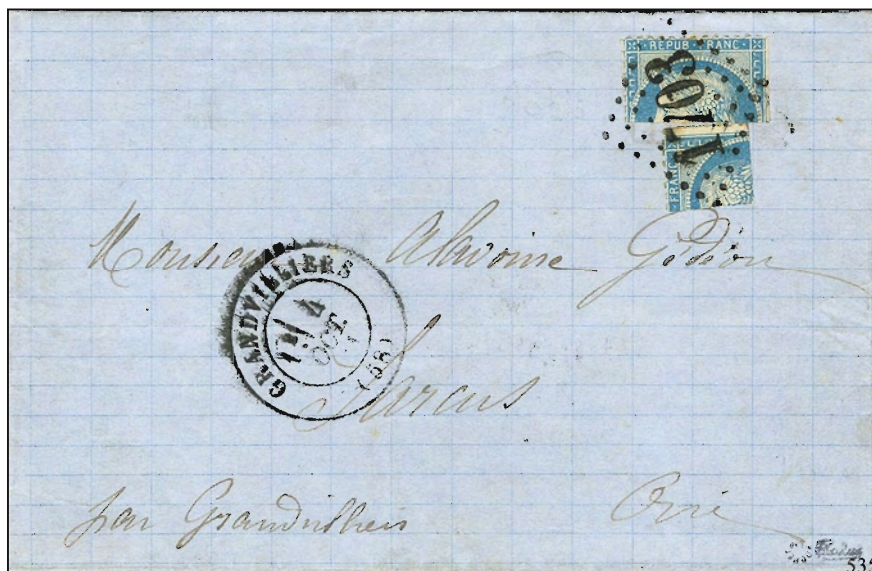 REPUB FRANC
1703
FRANC
Monsieur Alavoine Gédéon
GRANDVILLIERS
1E/ 4
OCT.
(58)
Sarcus
par Grandvilliers Oise
535